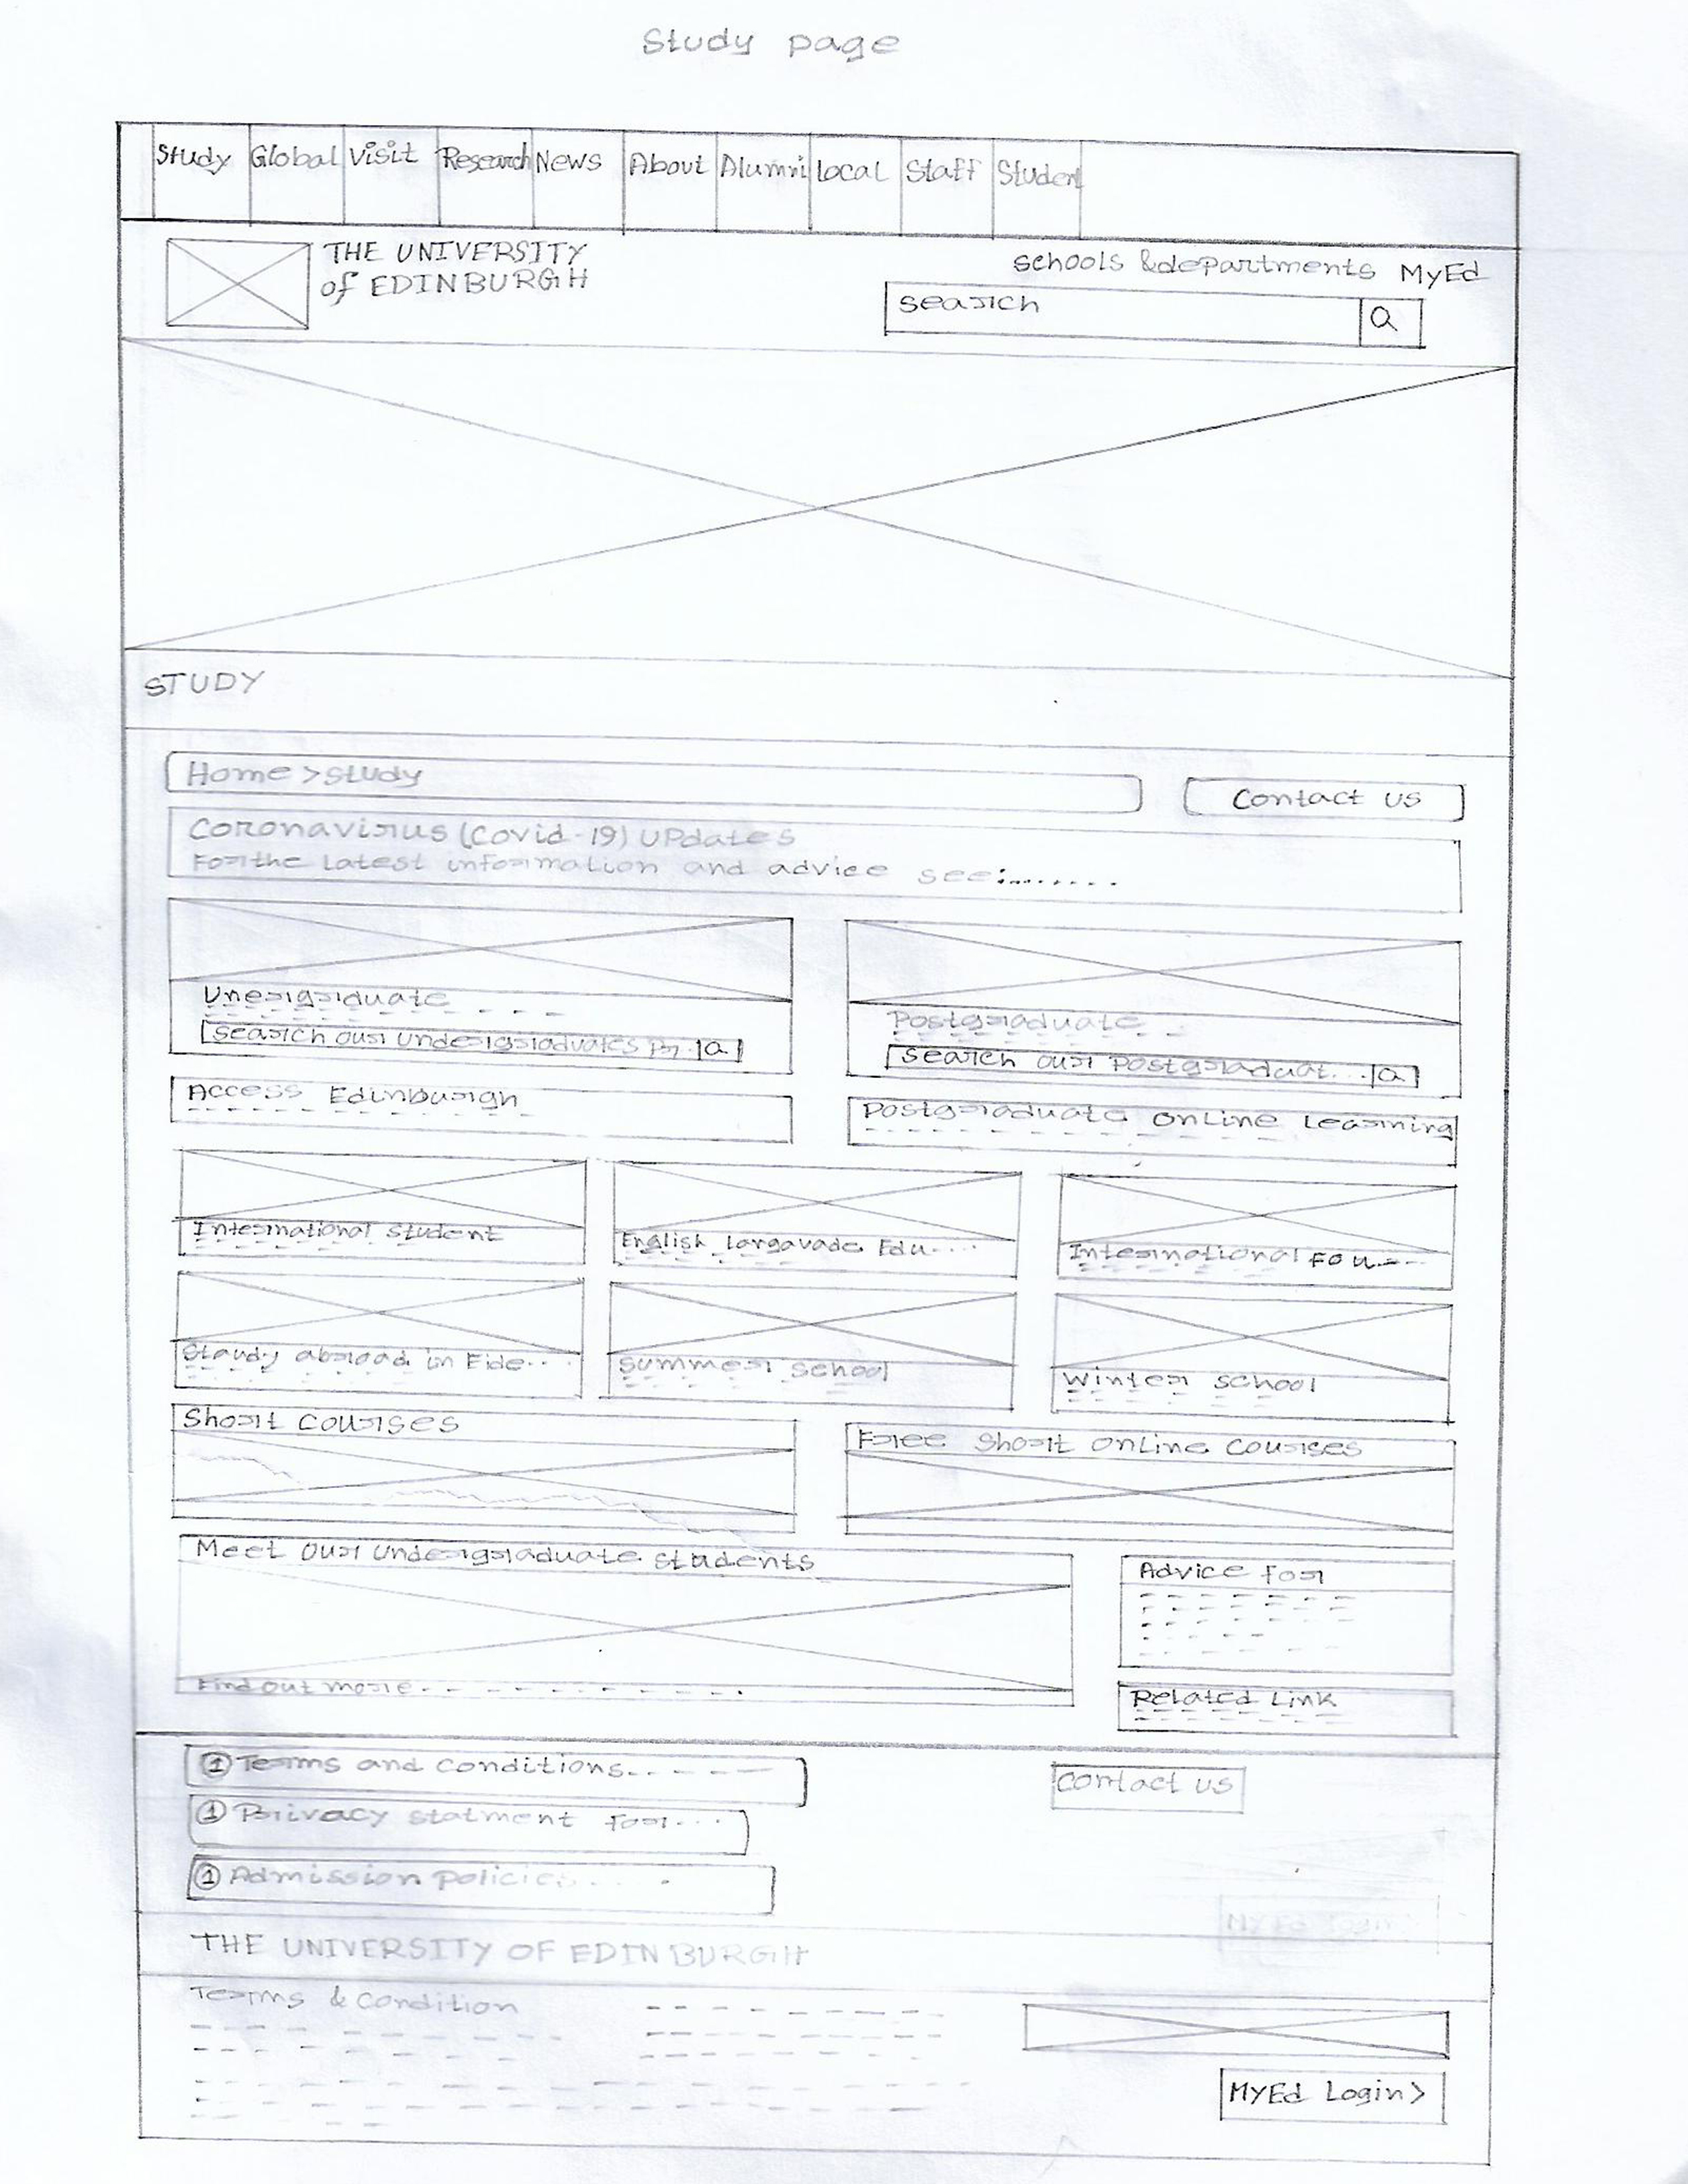 Study page
Study Global Visit Research News About Alumni Local Staff Student
THE UNIVERSITY
of EDINBURGH
schools & departments MyEd
search
STUDY
Home > study
Contact us
Coronavirus (Covid-19) UPdates
For the latest information and advice see:........
Unergraduate
Search our undergraduates Pr..
Postgraduate
Search our Postgraduat...
Access Edinburgh
Postgraduate Online Learning
International Student
English Langavade Edu....
International Fou...
Staudy abroad in Eide...
Summer School
Winter School
Short Courses
Free Short Online Courses
Meet our undergraduate students
Find out more
Advice for
Related Link
① Terms and conditions..
① Privacy statment for...
① Admission Policies....
Contact us
MyEd Login
THE UNIVERSITY OF EDINBURGH
Terms & Condition
MyEd Login >